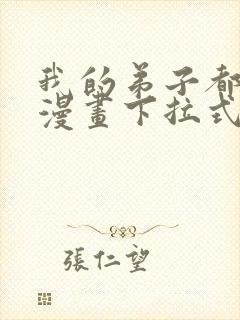 我的弟子都
漫畫下拉式
張仁望